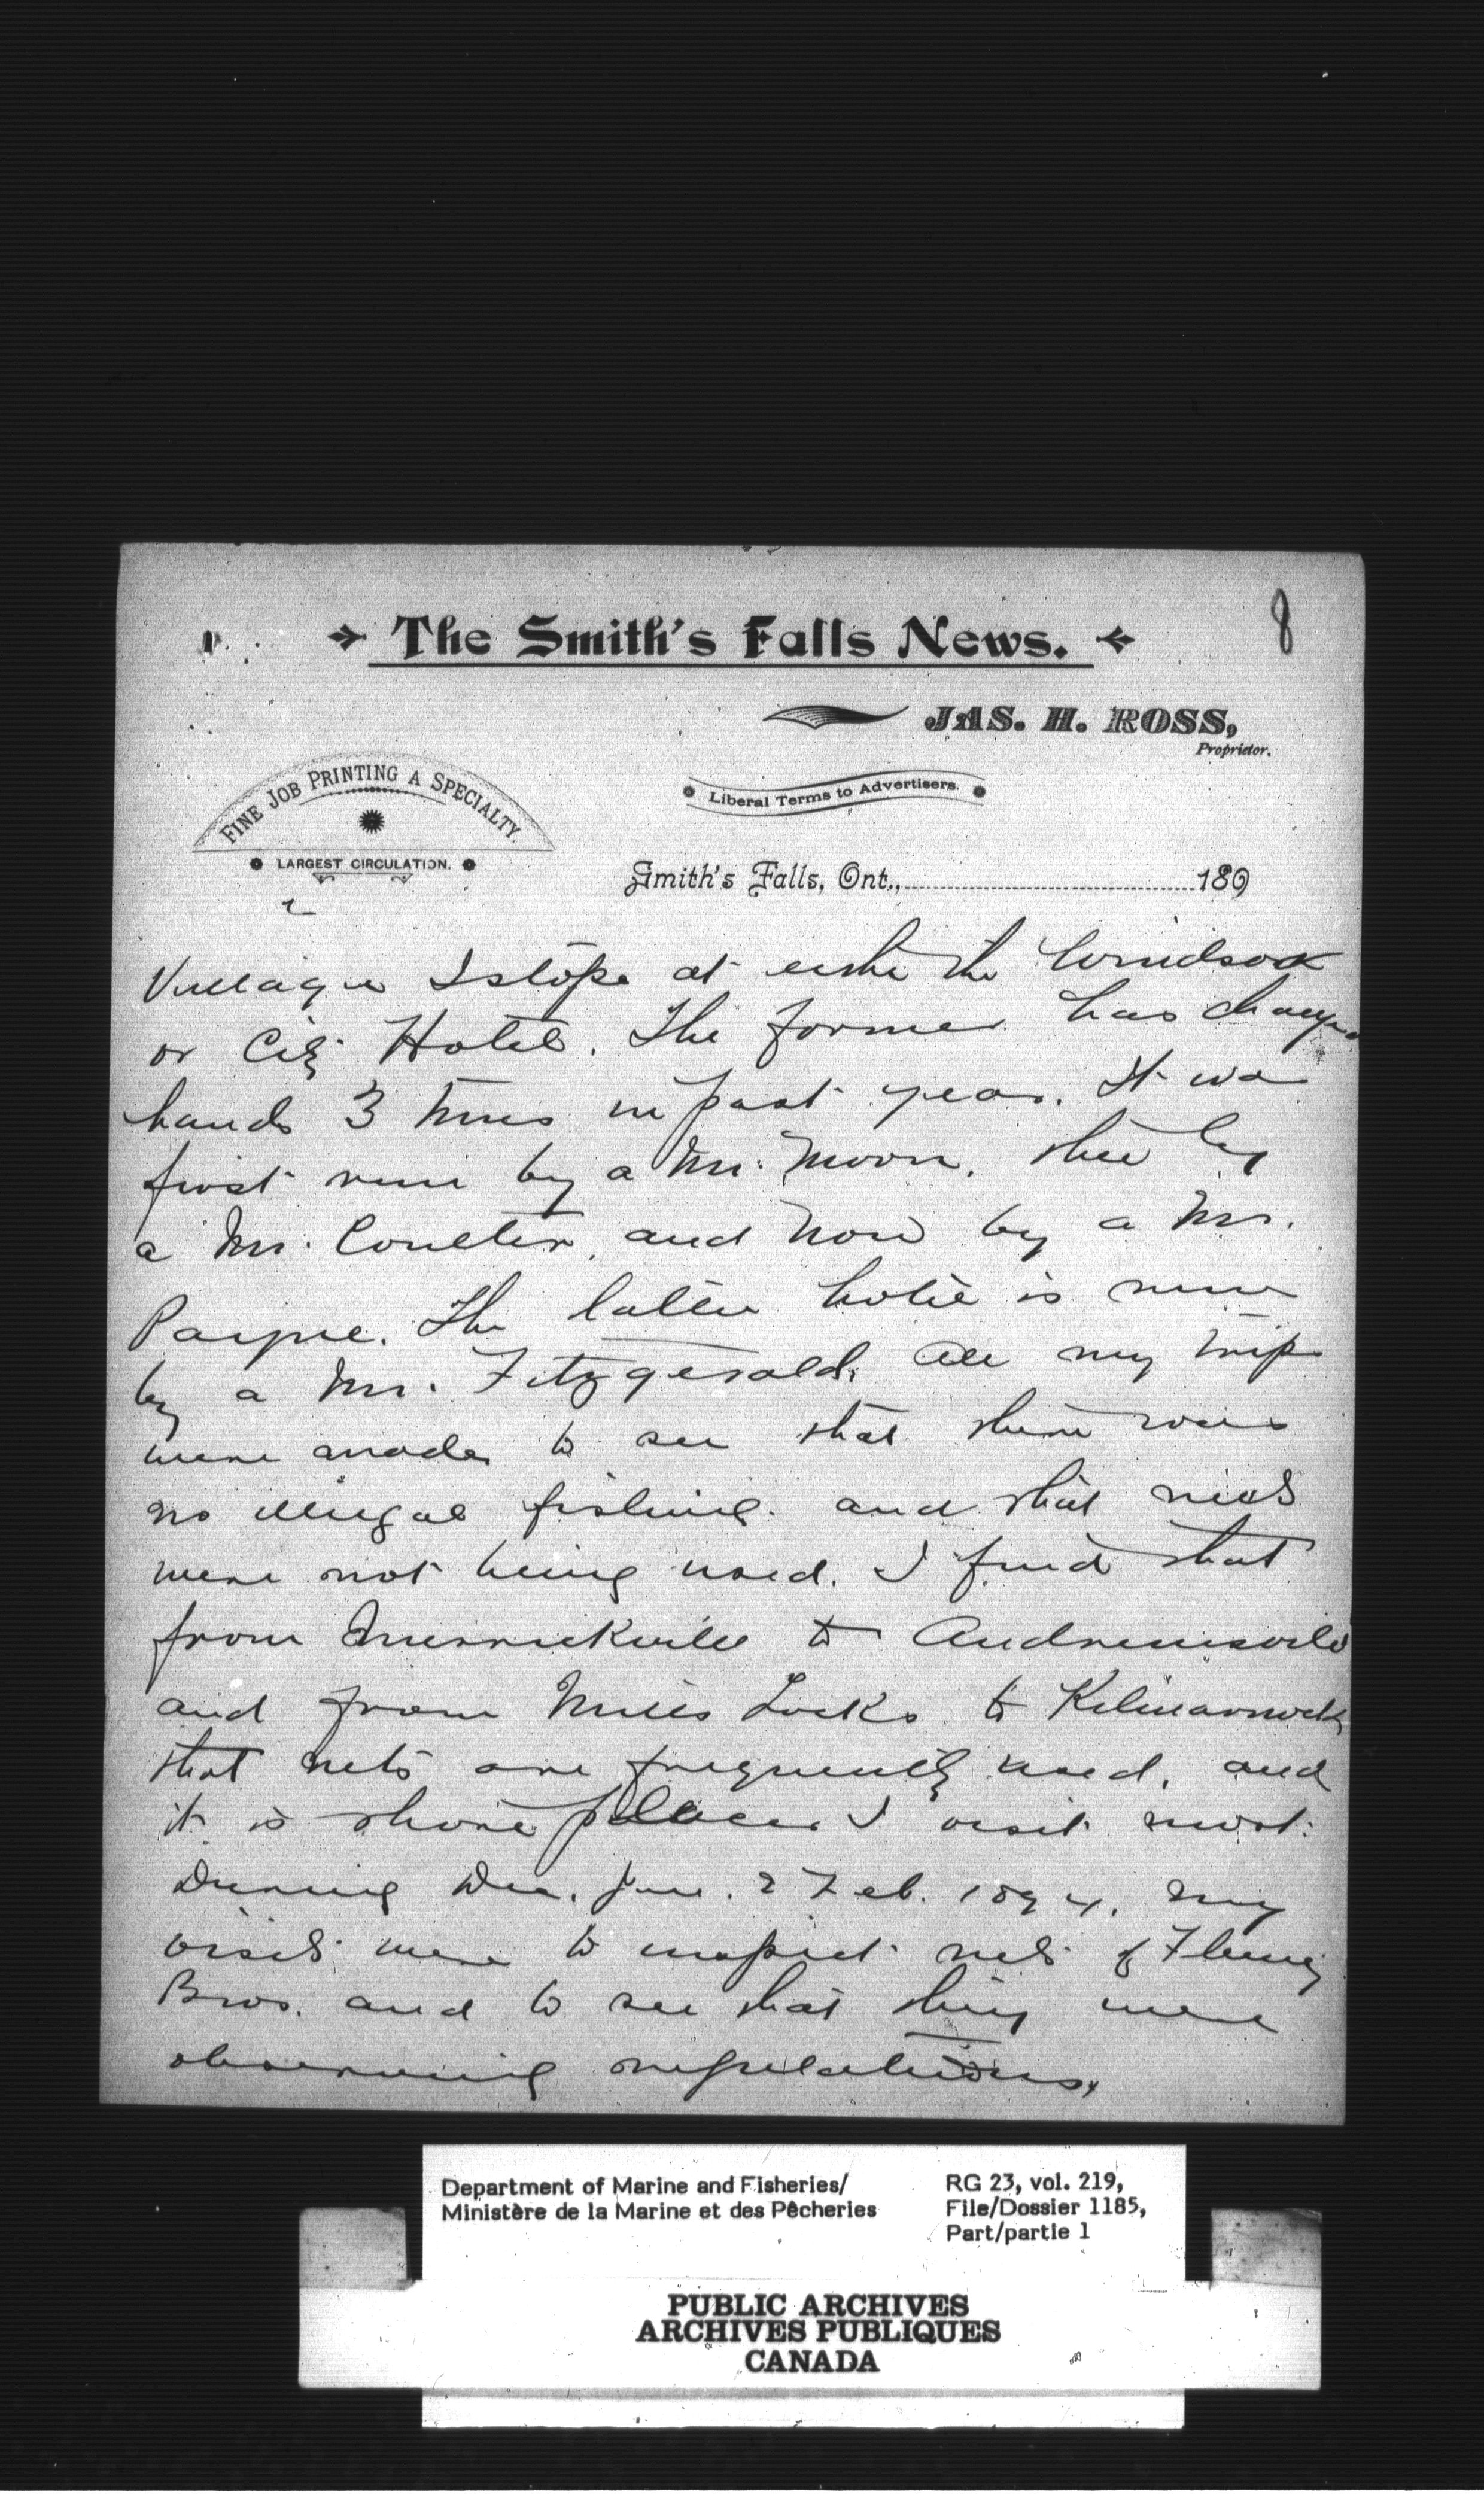 8
The Smith's Falls News.
JAS. H. ROSS,
Proprietor.
FINE JOB PRINTING A SPECIALTY.
Liberal Terms to Advertisers.
LARGEST CIRCULATION.
Smith's Falls, Ont., 189
2
Village I stop at either the Windsor
or City Hotel. The former has changed
hands 3 times in past year. It was
first run by a Mr. Moon, then by
a Mr. Coulter, and now by a Mr.
Payne. The latter hotel is run
by a Mr. Fitzgerald. All my trips
were made to see that there was
no illegal fishing and that nets
were not being used. I find that
from Merrickville to Andrewsville
and from Mills Locks to Kilmarnock
that nets are frequently used, and
it is those places I visit most.
During Dec. Jan. & Feb. 1894, my
visits were to inspect nets of Fleming
Bros. and to see that they were
observing regulations.
Department of Marine and Fisheries/
Ministère de la Marine et des Pêcheries
RG 23, vol. 219,
File/Dossier 1185,
Part/partie 1
PUBLIC ARCHIVES
ARCHIVES PUBLIQUES
CANADA